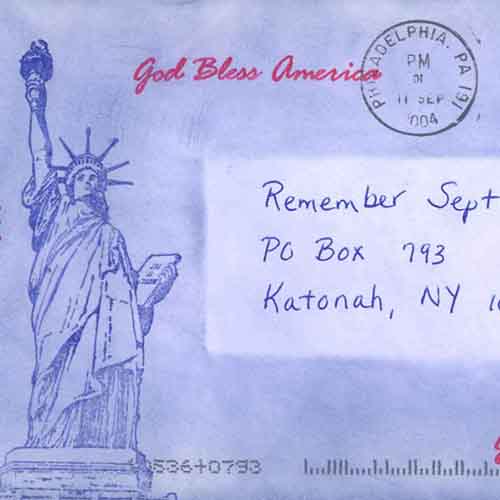 God Bless America
PHILADELPHIA, PA 191
PM
11 SEP
2004
Remember Sept
PO Box 793
Katonah, NY
0536+0793